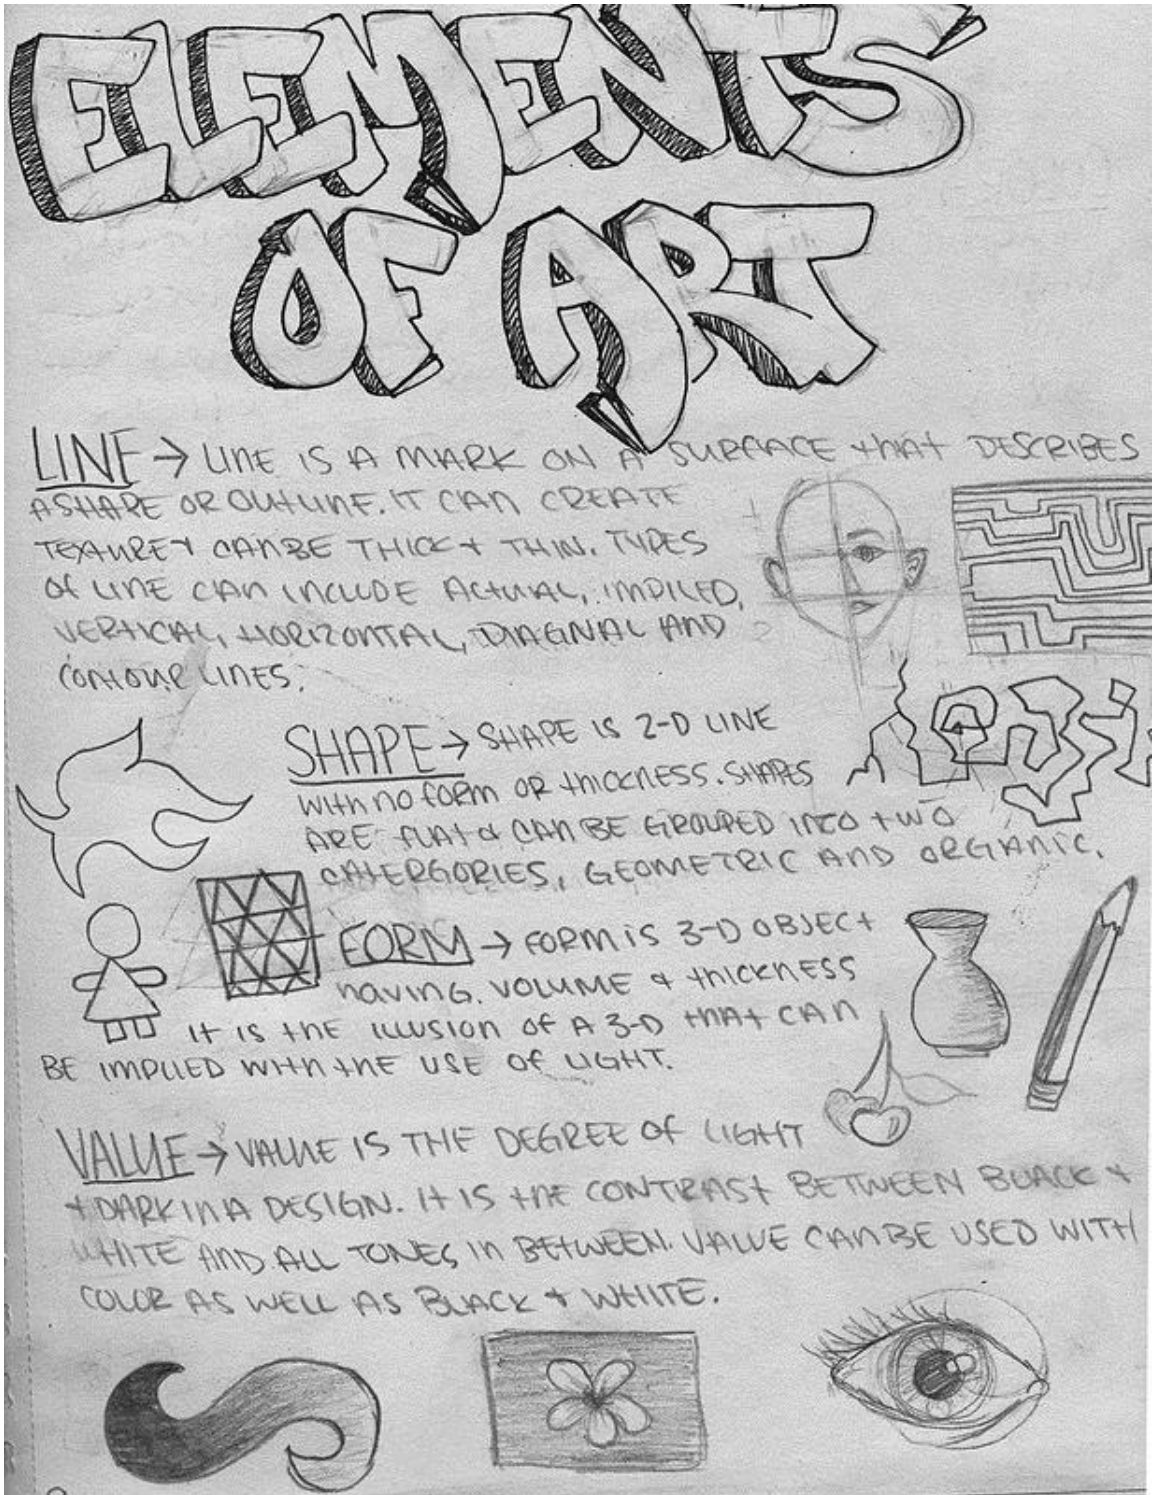 ELEMENTS
OF ART
LINE → LINE IS A MARK ON A SURFACE THAT DESCRIBES
A SHAPE OR OUTLINE. IT CAN CREATE
TEXTURE & CAN BE THICK & THIN. TYPES
OF LINE CAN INCLUDE ACTUAL, IMPILED,
VERTICAL, HORIZONTAL, DIAGNAL AND
CONTOUR LINES.
SHAPE → SHAPE IS 2-D LINE
WITH NO FORM OR THICKNESS. SHAPES
ARE FLAT & CAN BE GROUPED INTO TWO
CATERGORIES, GEOMETRIC AND ORGANIC.
FORM → FORM IS 3-D OBJECT
HAVING. VOLUME & THICKNESS
IT IS THE ILLUSION OF A 3-D THAT CAN
BE IMPLIED WITH THE USE OF LIGHT.
VALUE → VALUE IS THE DEGREE OF LIGHT
& DARK IN A DESIGN. IT IS THE CONTRAST BETWEEN BLACK &
WHITE AND ALL TONES IN BETWEEN. VALUE CAN BE USED WITH
COLOR AS WELL AS BLACK & WHITE.